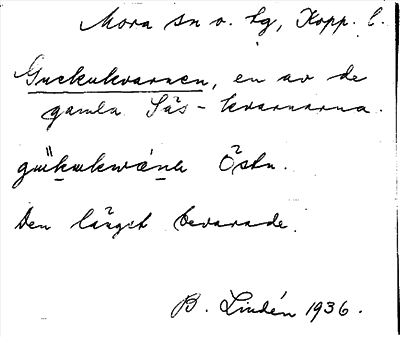 Mora sn o. tg, Kopp. l.
Guckukvarnen, en av de
gamla Säs-kvarnarna.
gukukwánɐ Östn.
Den längst bevarade.
B. Lindén 1936.